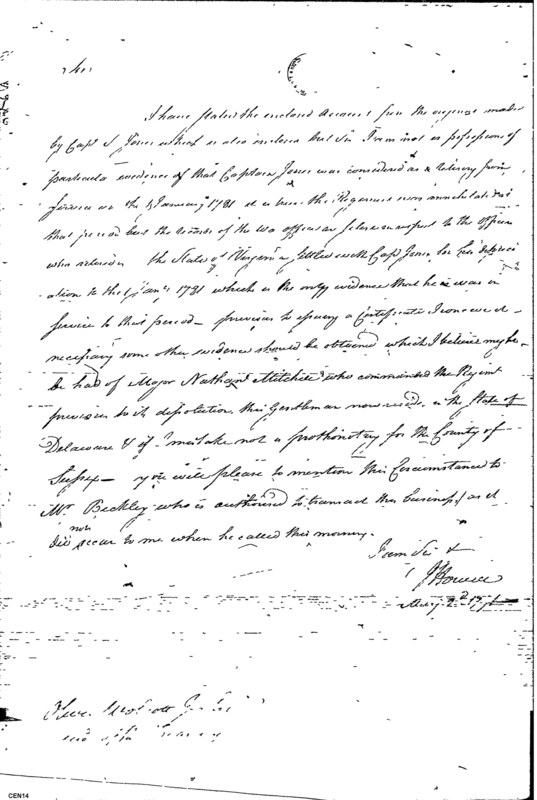 Sir
I have stated the enclosed account from the original made
by Capt S Jones which is also inclosed but Sir I am not in possession of
particular evidence of that Captain Jones was considered as a retiring from
service on the 1 January 1781 the Regiment was annihilated at
that period but the records of the War office are silent in respect to the officers
who retired the State of Virginia settled with Capt Jones for his depreci
ation to the 1 Jany 1781 which is the only evidence that he was in
service to that period – previous to issuing a Certificate I conceive it
necessary some other evidence should be obtained which I believe may be
be had of Major Nathan Mitchell who commanded the Regiment
previous to its dissolution, this Gentleman now resides in the State of
Delaware & if I mistake not a prothonotary for the County of
Sussex – you will please to mention this Circumstance to
Mr Beckley who is authorised to transact this business as it
did not occur to me when he called this morning.
I am Sir &
J Howell
May 2d
Oliver Wolcott
CEN14